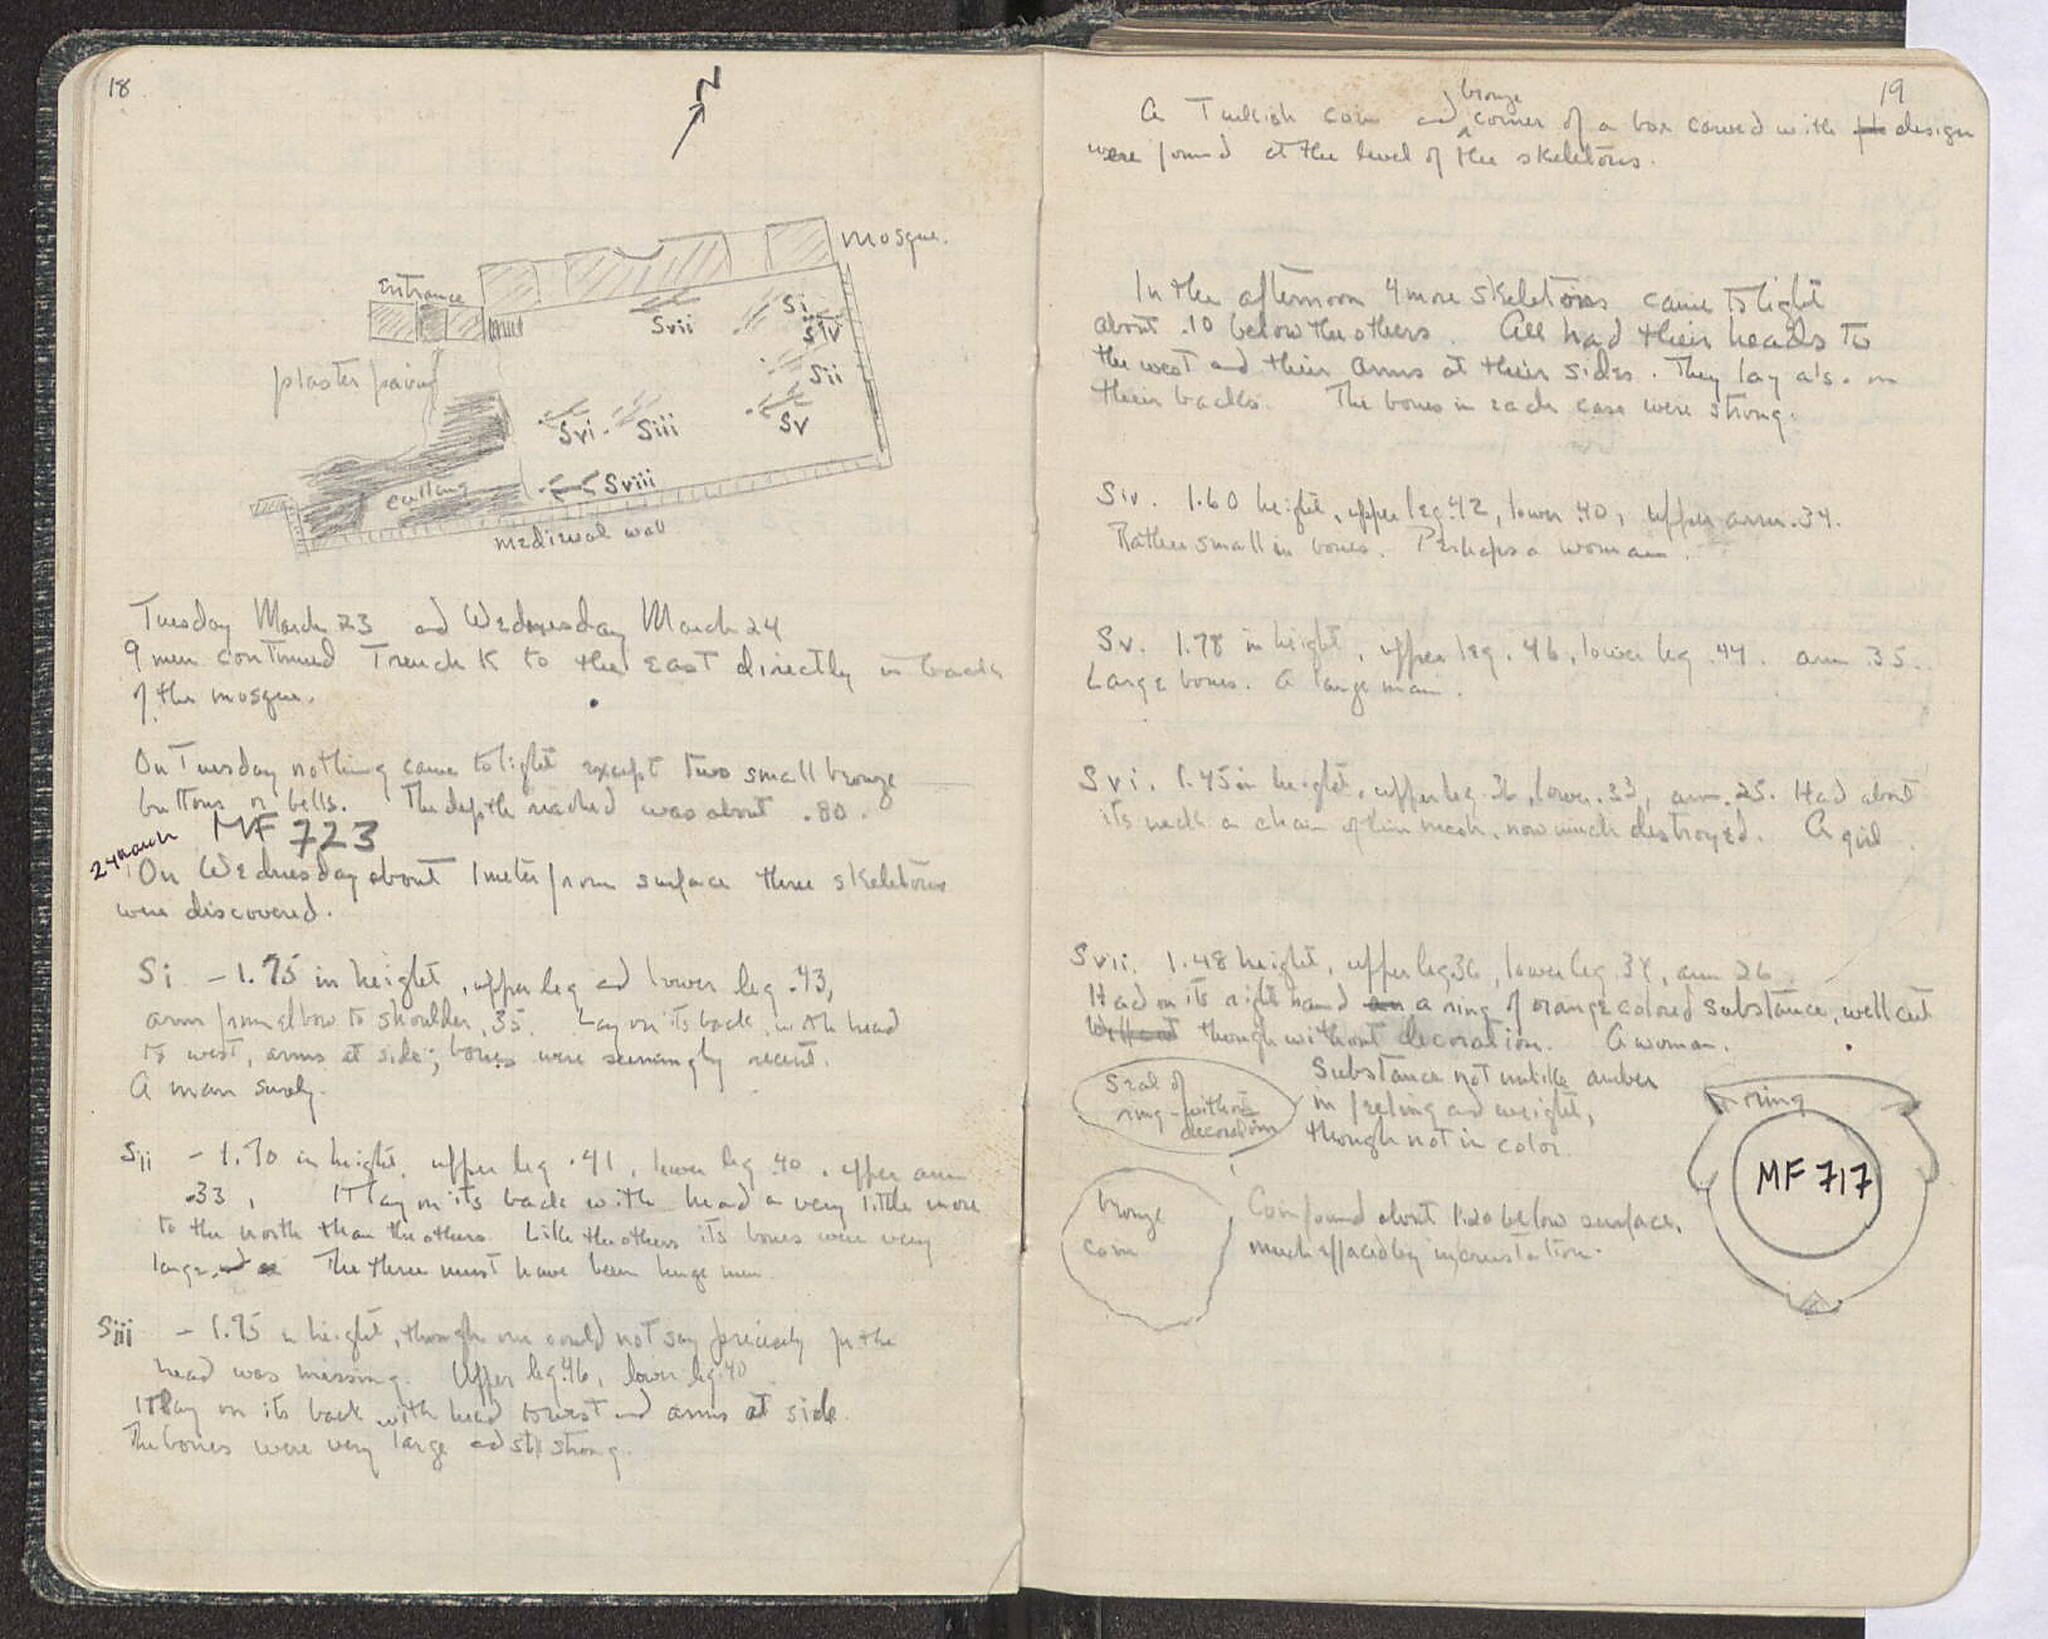 18
N
mosque.
Entrance
Si
Siv
Svii
Sii
plaster paving
Svi
Siii
Sv
Sviii
cutting
medieval wall
Tuesday March 23 and Wednesday March 24
9 men continued Trench K to the East directly in back
of the mosque.
On Tuesday nothing came to light except two small bronze
buttons or bells. The depth reached was about .80.
MF 723
24 March
On Wednesday about 1 meter from surface three skeletons
were discovered.
Si - 1.75 in height, upper leg and lower leg .43,
arm from elbow to shoulder .35. Lay on its back with head
to west, arms at side; bones were seemingly recent.
A man surely.
Sii - 1.70 in height, upper leg .41, lower leg .40, upper arm
.33, It lay on its back with head a very little more
to the north than the others. Like the others its bones were very
large. The three must have been huge men.
Siii - 1.75 in height, though one could not say precisely for the
head was missing. Upper leg .46, lower leg .40
It lay on its back with head to west and arms at side.
The bones were very large and strong.
19
A Turkish coin and bronze corner of a box carved with design
were found at the level of the skeletons.
In the afternoon 4 more skeletons came to light
about .10 below the others. All had their heads to
the west and their arms at their sides. They lay als. on
their backs. The bones in each case were strong.
Siv. 1.60 height, upper leg .42, lower .40, upper arm .34.
Rather small in bones. Perhaps a woman.
Sv. 1.78 in height, upper leg .46, lower leg .44. arm .35.
Large bones. A large man.
Svi. 1.45 in height, upper leg .36, lower .33, arm .25. Had about
its neck a chain of thin mesh, now much destroyed. A girl.
Svii. 1.48 height, upper leg .36, lower leg .34, arm .26
Had on its right hand a ring of orange colored substance, well cut
though without decoration. A woman.
Seal of
ring - without
decoration
Substance not unlike amber
in feeling and weight,
though not in color.
ring
MF 717
bronze
coin
Coin found about 1.20 below surface,
much effaced by incrustation.